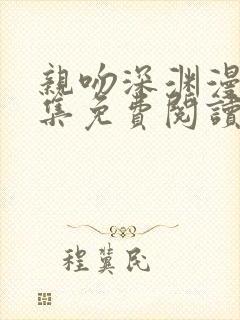 親吻深渊漫
集免費閱讀
程冀民